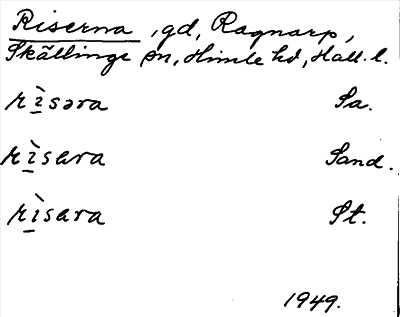 Riserna, gd, Ragnarp,
Skällinge sn, Himle hd, Hall. l.
rì̲səra Sa.
rì̲sara Sand.
rì̲sara St.
1949.